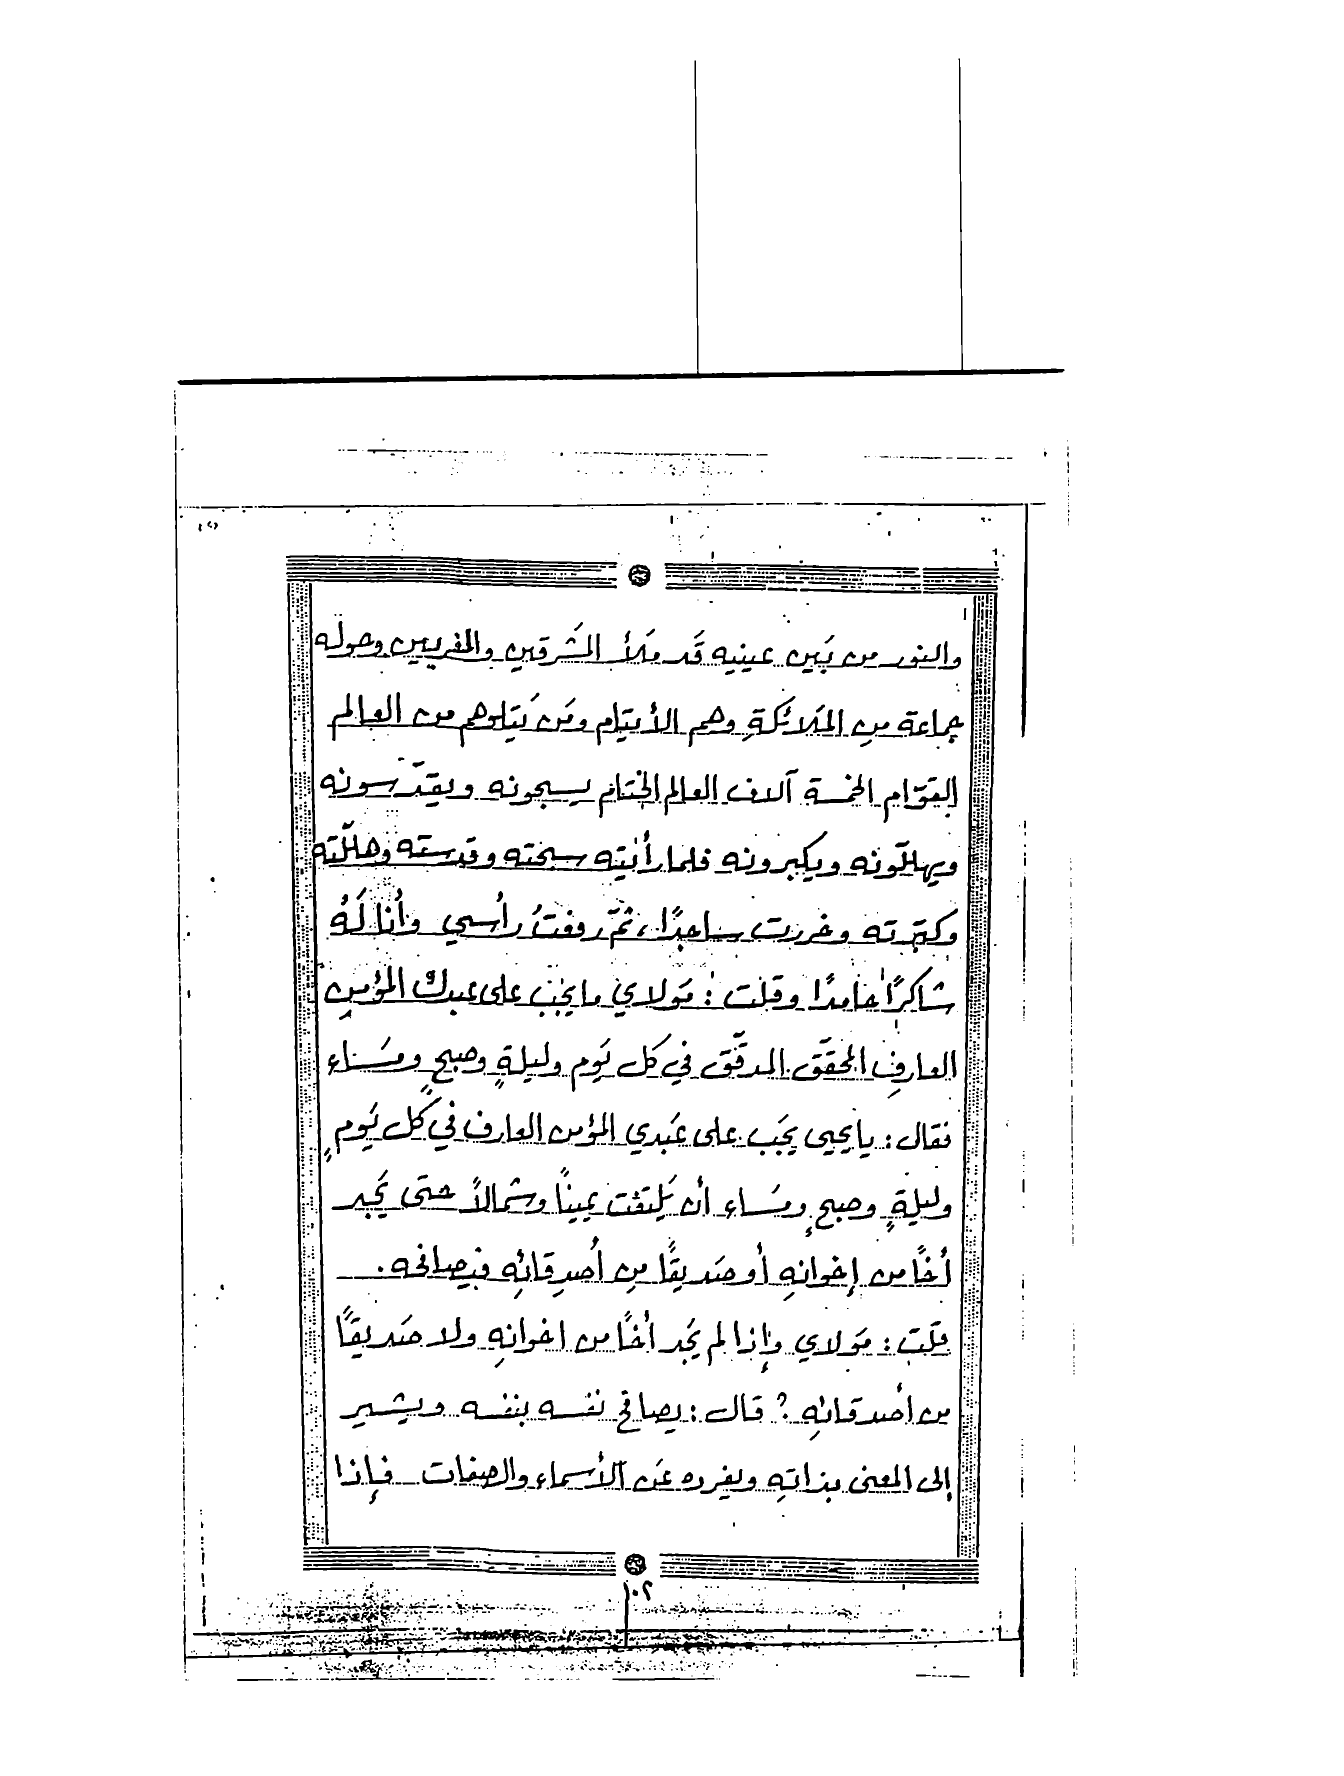 والنور من بَين عينيه قَد مَلأ المَشَرقين والمغربين وحوله
جماعة مِن المَلائكةِ وهم الأيتام ومَن يَتلوهم من العالم
القوّام الخمسة آلاف العالم الختام يسبحونه ويقدّسونه
ويهللّونه ويكبرونه فلما رأيته سبحته وقدسته وهللّته
وكبّرته وخررت ساجدًا، ثمّ رفعتُ رأسي وأنا لَهُ
شاكرًا حامدًا وقلت: مَولاي ما يجب على عبدك المؤمنِ
العارفِ المحقّق المدقّق في كل يَوم وليلةٍ وصبحٍ ومسَاءٍ
فقال: يا يحيى يجَب على عَبدي المؤمن العارف في كل يَومٍ
وليلةٍ وصبحٍ ومسَاء أن يَلتفت يمينًا وشمالاً حتى يَجد
أخًا من إخوانهِ أو صَديقًا مِن أُصدِقائِه فيصافحه.
قلت: مَولاي وإذا لم يَجد أخًا من اخوانهِ ولا صَديقًا
من أصدقائهِ؟ قال: يصافح نفسه بنفسه ويشير
إلى المعنى بذاتهِ ويفرده عَن الأسماء والصفات فإذا
١٠٢